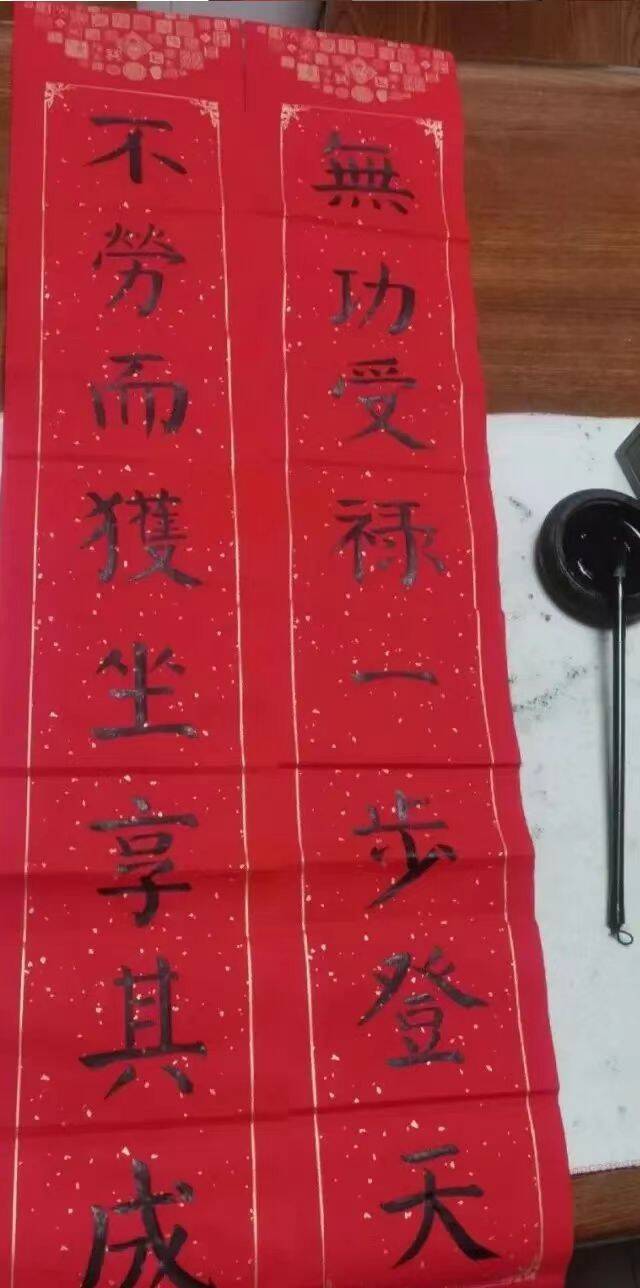 無功受禄一步登天
不勞而獲坐享其成